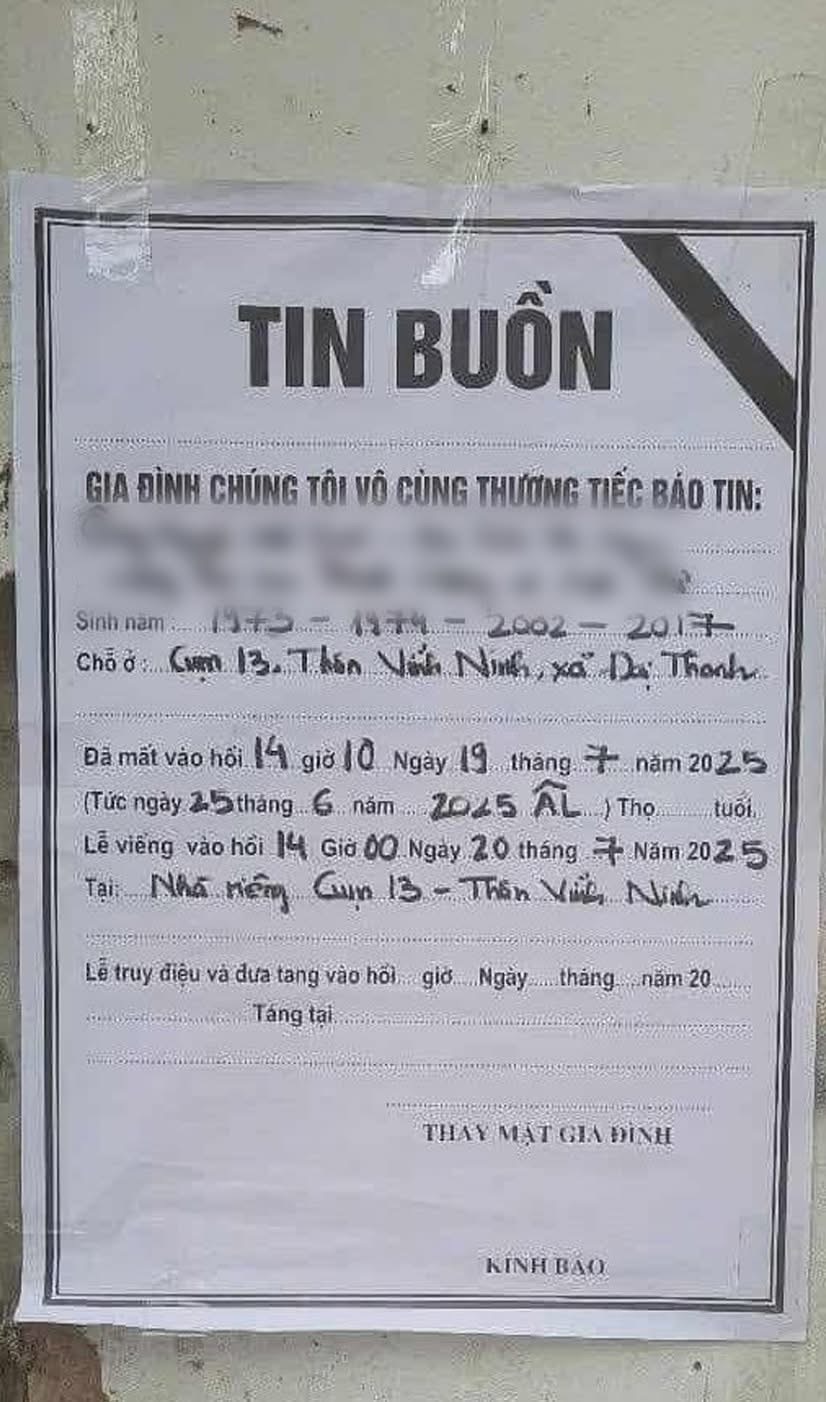 TIN BUỒN
GIA ĐÌNH CHÚNG TÔI VÔ CÙNG THƯƠNG TIẾC BÁO TIN:
Sinh năm: 1973 - 1974 - 2002 - 2017
Chỗ ở: Cụm 13. Thôn Vĩnh Ninh, xã Đại Thanh
Đã mất vào hồi 14 giờ 10 Ngày 19 tháng 7 năm 2025
(Tức ngày 25 tháng 6 năm 2025 ÂL) Thọ tuổi
Lễ viếng vào hồi 14 Giờ 00 Ngày 20 tháng 7 Năm 2025
Tại: Nhà riêng Cụm 13 - Thôn Vĩnh Ninh
Lễ truy điệu và đưa tang vào hồi giờ Ngày tháng năm 20
Táng tại
THAY MẶT GIA ĐÌNH
KÍNH BÁO